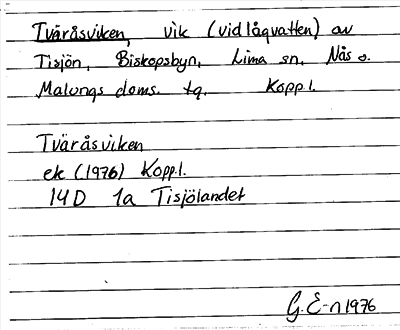 Tväråsviken, vik (vid lågvatten) av
Tisjön, Biskopsbyn, Lima sn, Nås o.
Malungs doms. tg. Kopp l.
Tväråsviken
ek (1976) Kopp.l.
14 D 1a Tisjölandet
G. E-n 1976